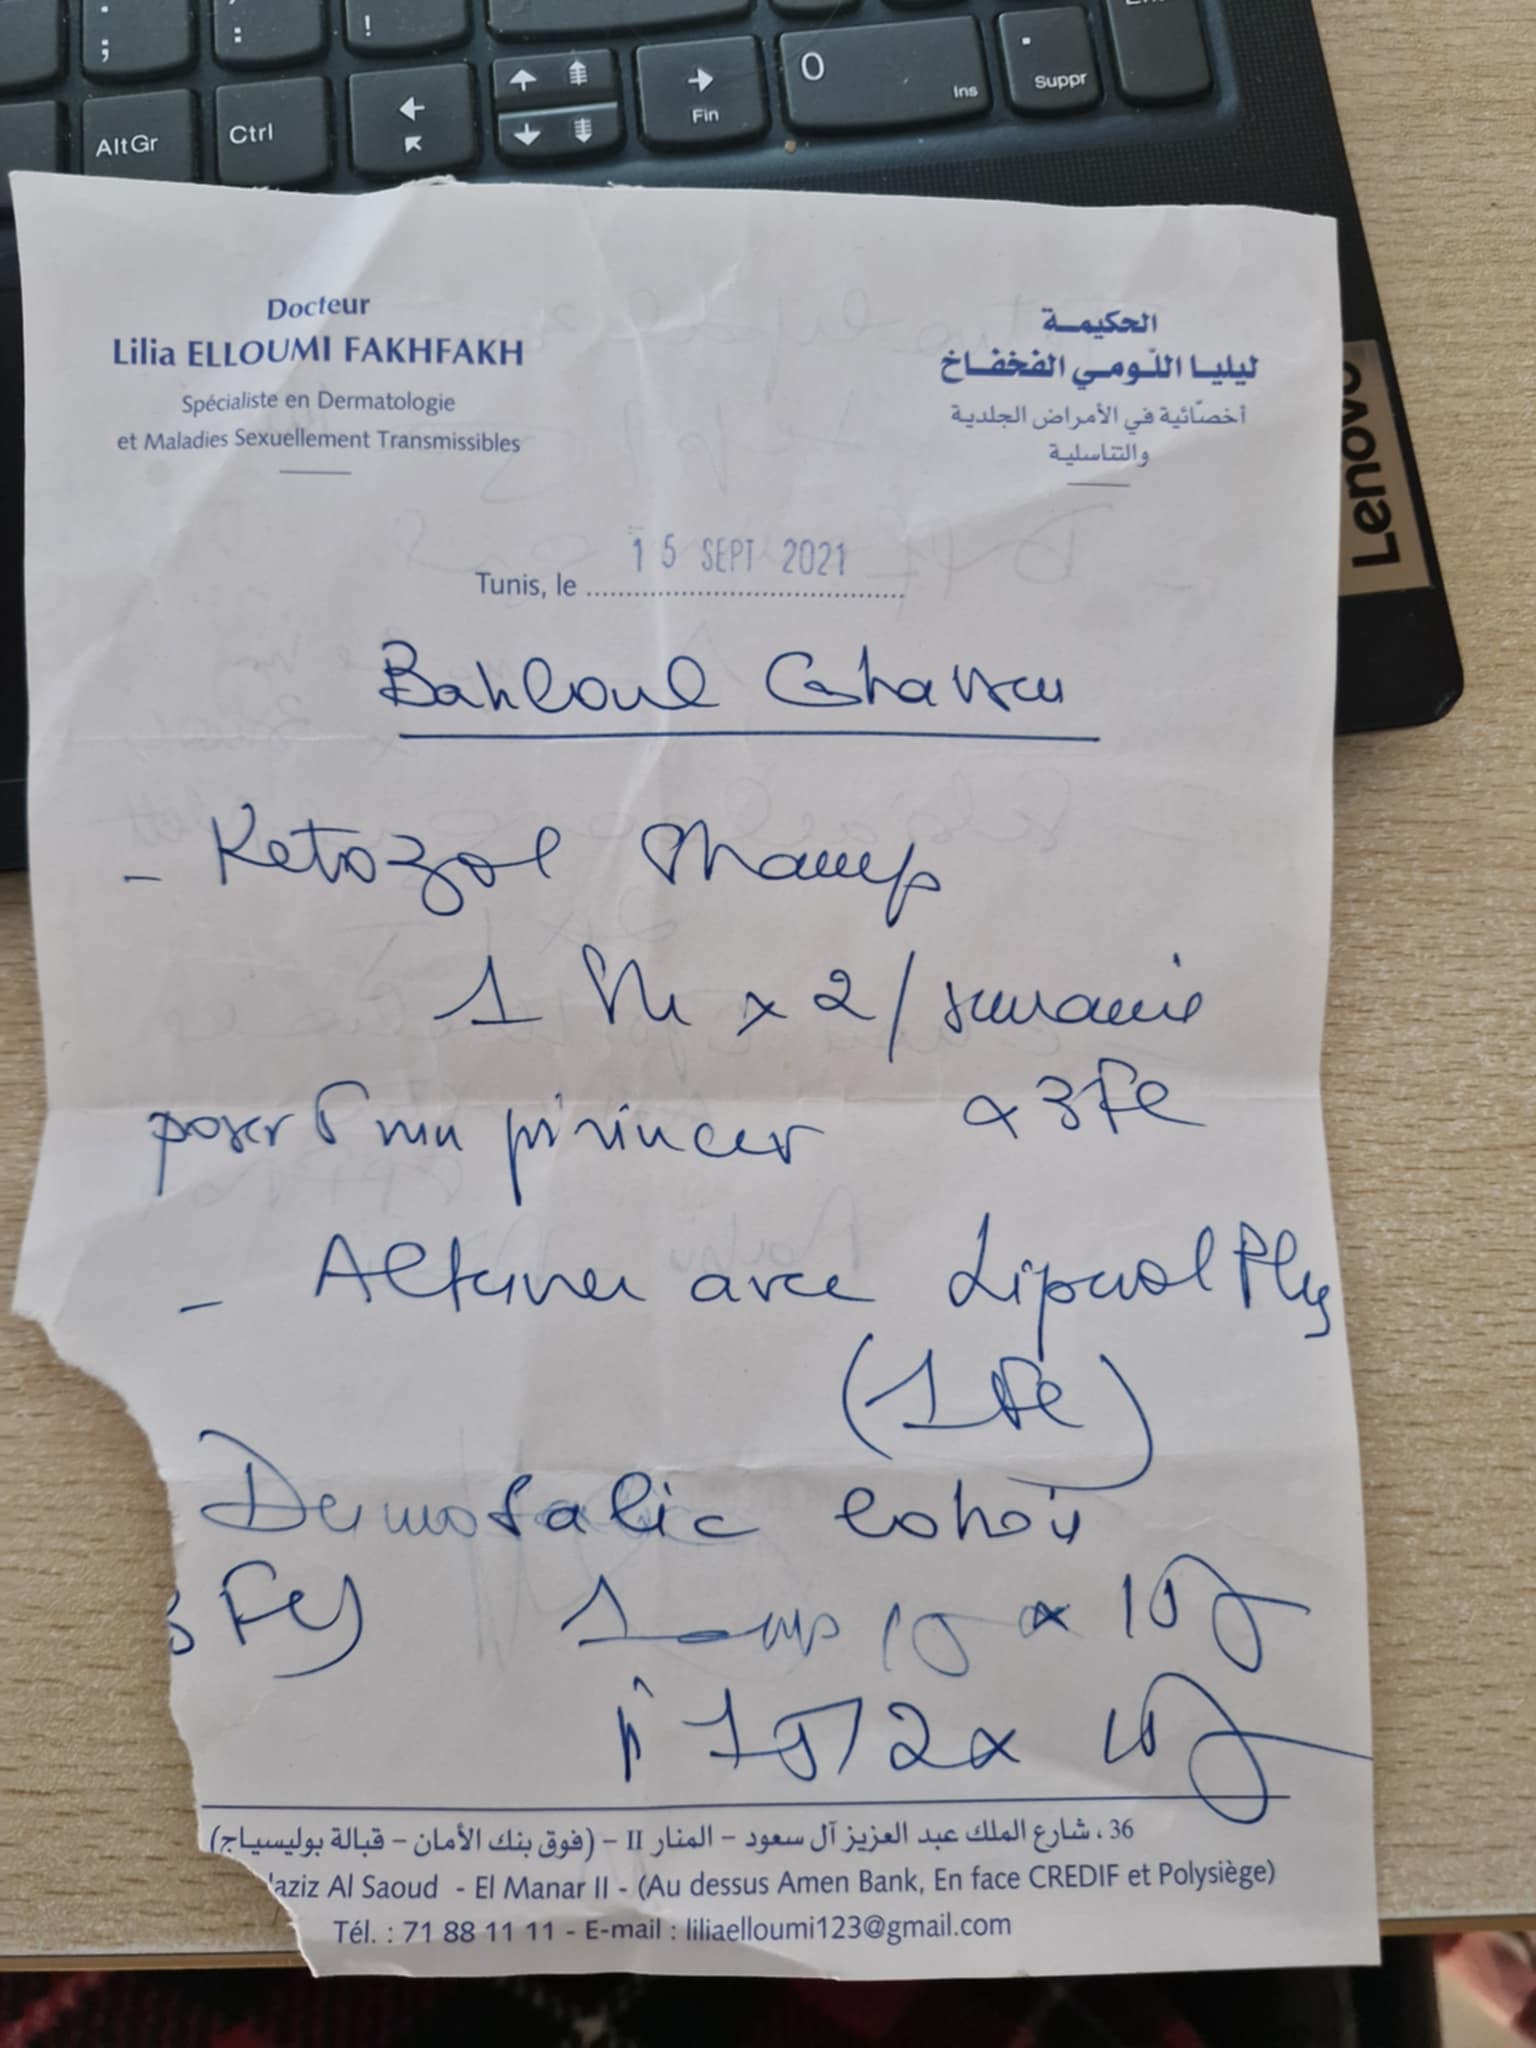 ;
:
!
AltGr
Ctrl
Fin
0
Ins
.
Suppr
Lenovo
Docteur
Lilia ELLOUMI FAKHFAKH
Spécialiste en Dermatologie
et Maladies Sexuellement Transmissibles
الحكيمة
ليليا اللّومي الفخفاخ
أخصّائية في الأمراض الجلدية
والتناسلية
15 SEPT 2021
Tunis, le
Bahloul
- Ketozol Shamp
1 Sh x 2 / semaine
poser 5 mn pi rincer x 3 Fe
- Alterner avec
(1 Fe)
Dermosalic lotion
1 10j
1j/2 x 10j
36 ، شارع الملك عبد العزيز آل سعود - المنار II - (فوق بنك الأمان - قبالة بوليسياج)
aziz Al Saoud - El Manar II - (Au dessus Amen Bank, En face CREDIF et Polysiège)
Tél. : 71 88 11 11 - E-mail : liliaelloumi123@gmail.com